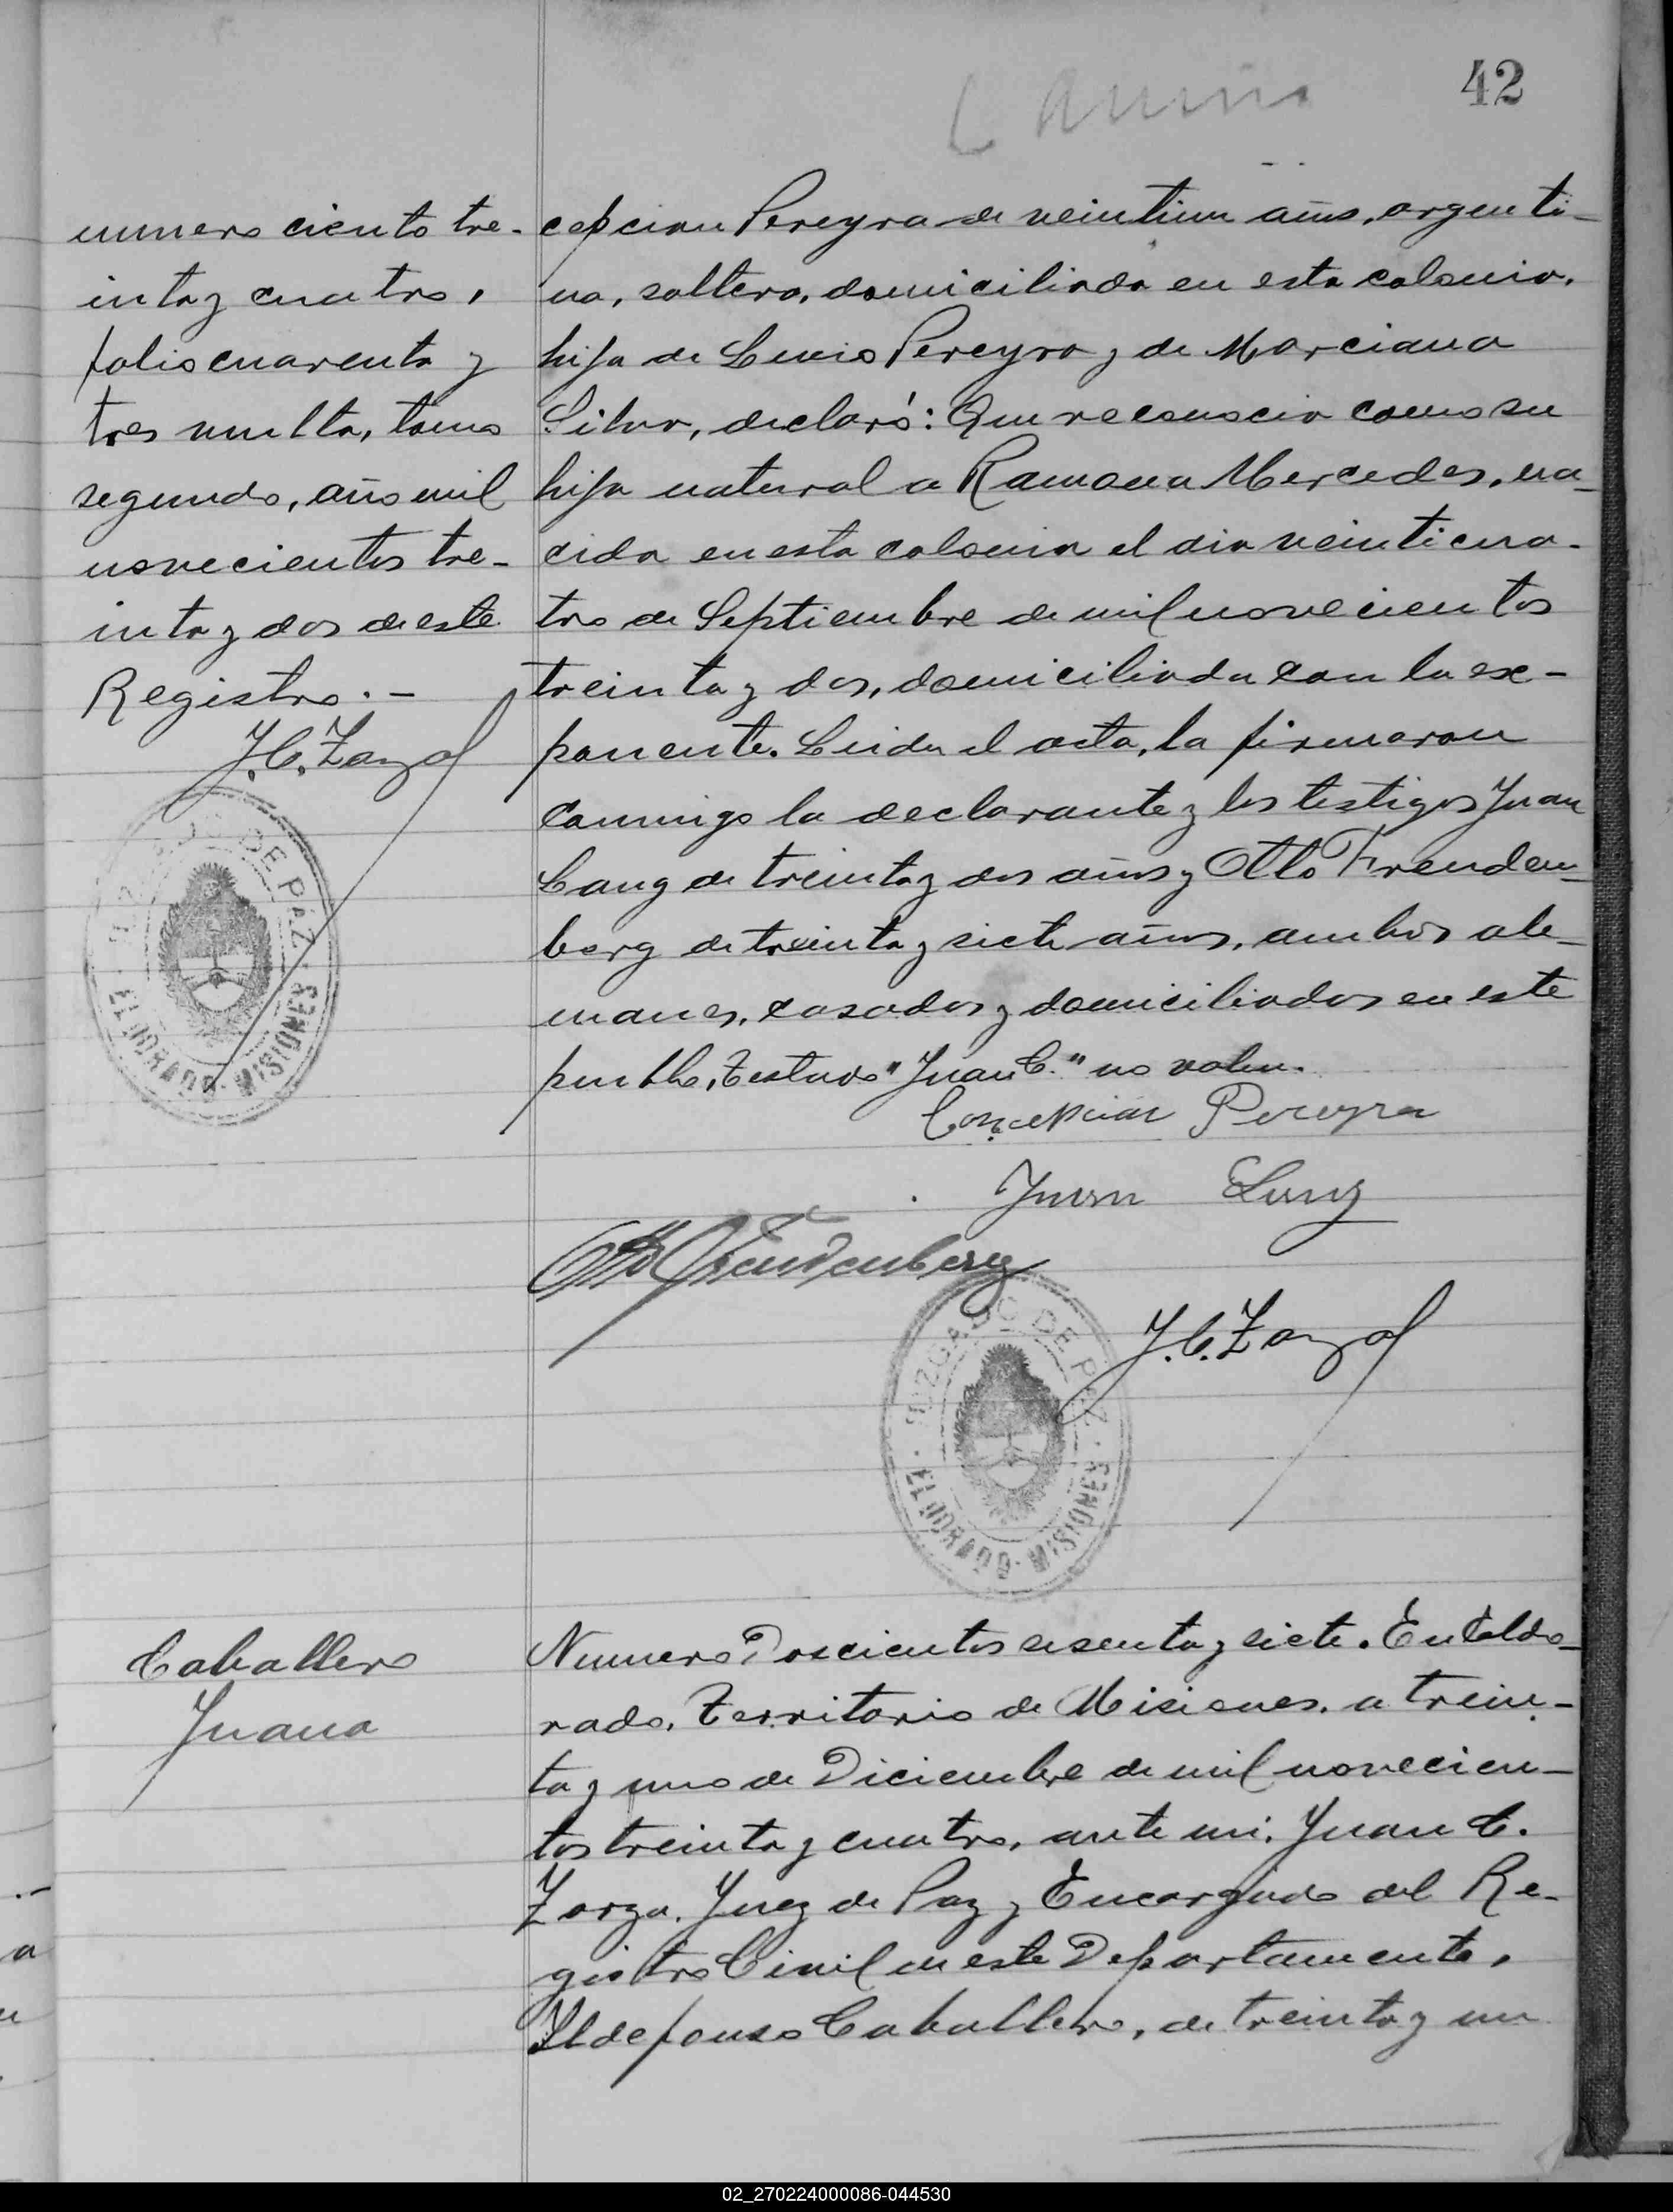 42
numero ciento tre-
inta y cuatro,
folio cuarenta y
tres vuelta, tomo
segundo, año mil
novecientos tre-
inta y dos de este
Registro.-
J.C. Zarza
JUZGADO DE PAZ
ELDORADO - MISIONES
cepcion Pereyra de veintiun años, argenti-
na, soltera, domiciliada en esta colonia,
hija de Lucio Pereyra y de Marciana
Silva, declaró: Que reconocia como su
hija natural a Ramona Mercedes, na-
cida en esta colonia el dia veinticua-
tro de Septiembre de mil novecientos
treinta y dos, domiciliada con la ex-
ponente. Leida el acta, la firmaron
conmigo la declarante y los testigos Juan
Lang de treinta y dos años y Otto Freuden-
berg de treinta y siete años, ambos ale-
manes, casados y domiciliados en este
pueblo. Testado "Juan C." no valen.
Concepcion Pereyra
Juan Lang
Otto Freudenberg
J.C. Zarza
JUZGADO DE PAZ
ELDORADO - MISIONES
Caballero
Juana
Numero Doscientos sesenta y siete. En Eldo-
rado, Territorio de Misiones, a trein-
ta y uno de Diciembre de mil novecien-
tos treinta y cuatro, ante mi, Juan C.
Zarza, Juez de Paz y Encargado del Re-
gistro Civil en este Departamento,
Ildefonso Caballero, de treinta y un
02_270224000086-044530